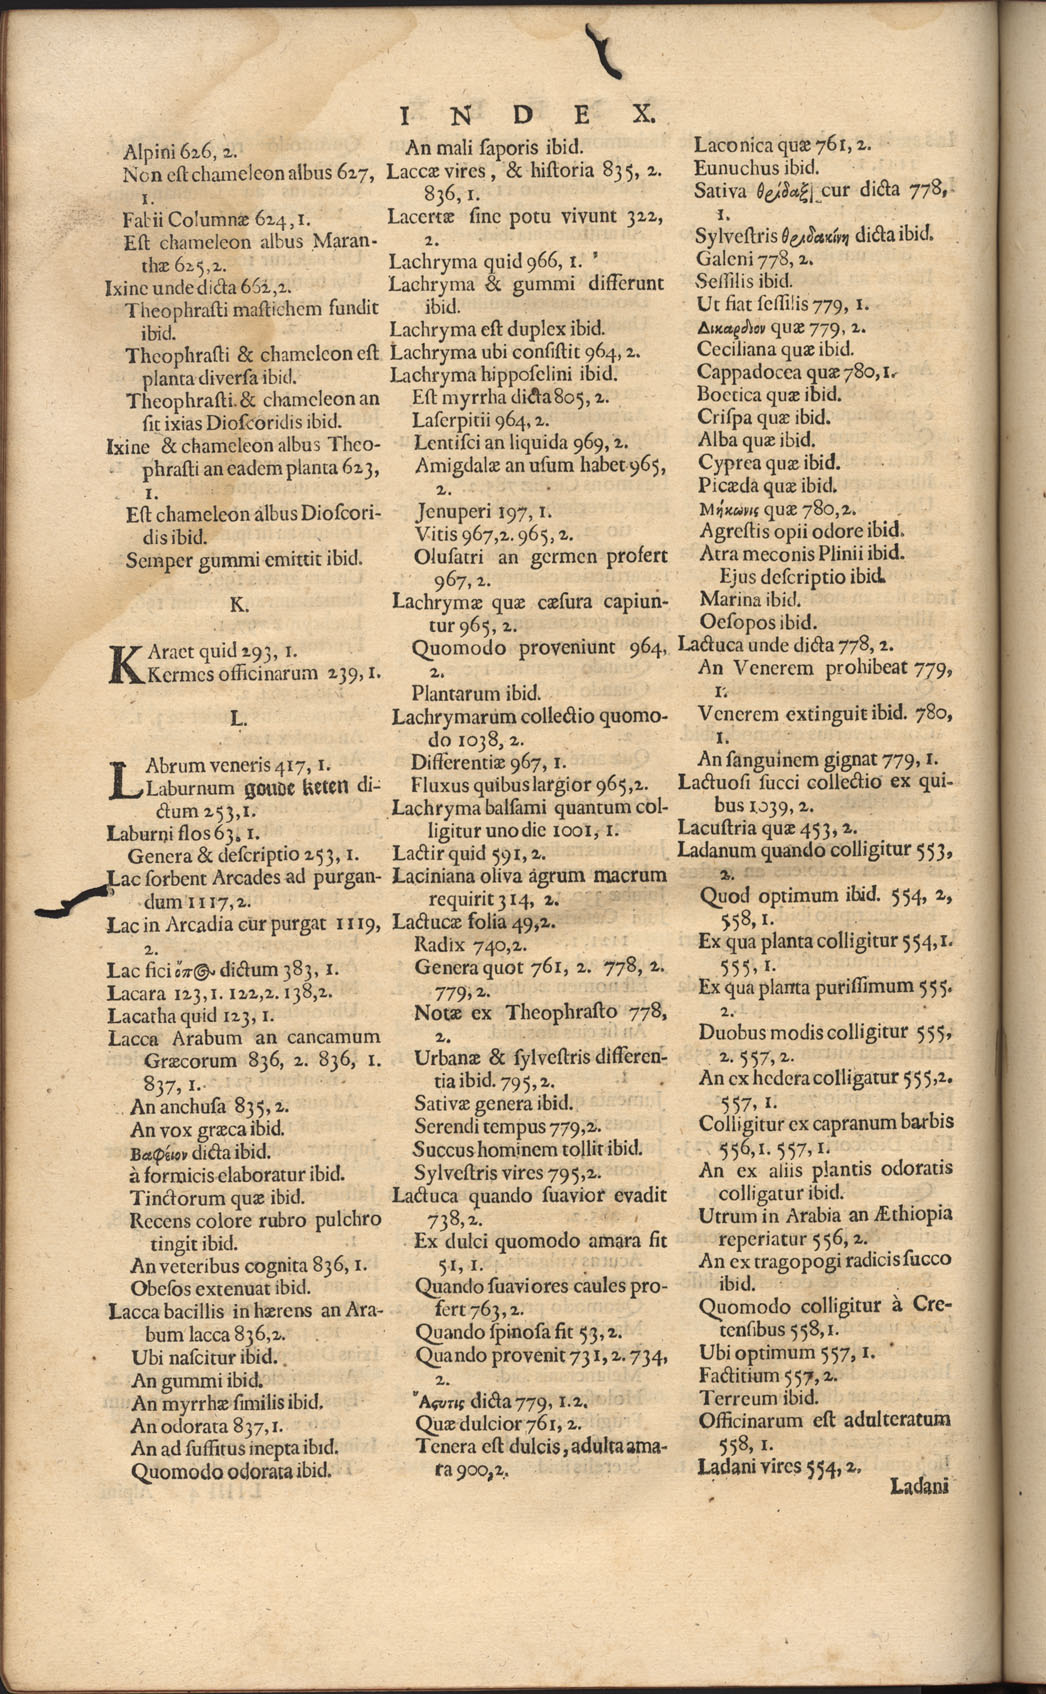 INDEX.
Alpini 626, 2.
Non eſt chameleon albus 627,
1.
Fabii Columnæ 624, 1.
Eſt chameleon albus Maran-
thæ 625, 2.
Ixine unde dicta 662, 2.
Theophraſti maſtichem fundit
ibid.
Theophraſti & chameleon eſt
planta diverſa ibid.
Theophraſti & chameleon an
ſit ixias Dioſcoridis ibid.
Ixine & chameleon albus Theo-
phraſti an eadem planta 623,
1.
Eſt chameleon albus Dioſcori-
dis ibid.
Semper gummi emittit ibid.
K.
KAraet quid 293, 1.
Kermes officinarum 239, 1.
L.
LAbrum veneris 417, 1.
Laburnum goude keten di-
ctum 253, 1.
Laburni flos 63, 1.
Genera & deſcriptio 253, 1.
Lac ſorbent Arcades ad purgan-
dum 1117, 2.
Lac in Arcadia cur purgat 1119,
2.
Lac fici ὀπὸς dictum 383, 1.
Lacara 123, 1. 122, 2. 138, 2.
Lacatha quid 123, 1.
Lacca Arabum an cancamum
Græcorum 836, 2. 836, 1.
837, 1.
An anchuſa 835, 2.
An vox græca ibid.
Βαφεῖον dicta ibid.
à formicis elaboratur ibid.
Tinctorum quæ ibid.
Recens colore rubro pulchro
tingit ibid.
An veteribus cognita 836, 1.
Obeſos extenuat ibid.
Lacca bacillis in hærens an Ara-
bum lacca 836, 2.
Ubi naſcitur ibid.
An gummi ibid.
An myrrhæ ſimilis ibid.
An odorata 837, 1.
An ad ſuffitus inepta ibid.
Quomodo odorata ibid.
An mali ſaporis ibid.
Laccæ vires, & hiſtoria 835, 2.
836, 1.
Lacertæ ſine potu vivunt 322,
2.
Lachryma quid 966, 1.
Lachryma & gummi differunt
ibid.
Lachryma eſt duplex ibid.
Lachryma ubi conſiſtit 964, 2.
Lachryma hippoſelini ibid.
Eſt myrrha dicta 805, 2.
Laſerpitii 964, 2.
Lentiſci an liquida 969, 2.
Amigdalæ an uſum habet 965,
2.
Jenuperi 197, 1.
Vitis 967, 2. 965, 2.
Oluſatri an germen profert
967, 2.
Lachrymæ quæ cæſura capiun-
tur 965, 2.
Quomodo proveniunt 964,
2.
Plantarum ibid.
Lachrymarum collectio quomo-
do 1038, 2.
Differentiæ 967, 1.
Fluxus quibus largior 965, 2.
Lachryma balſami quantum col-
ligitur uno die 1001, 1.
Lactir quid 591, 2.
Laciniana oliva agrum macrum
requirit 314, 2.
Lactucæ folia 49, 2.
Radix 740, 2.
Genera quot 761, 2. 778, 2.
779, 2.
Notæ ex Theophraſto 778,
2.
Urbanæ & ſylveſtris differen-
tia ibid. 795, 2.
Sativæ genera ibid.
Serendi tempus 779, 2.
Succus hominem tollit ibid.
Sylveſtris vires 795, 2.
Lactuca quando ſuavior evadit
738, 2.
Ex dulci quomodo amara fit
51, 1.
Quando ſuaviores caules pro-
fert 763, 2.
Quando ſpinoſa fit 53, 2.
Quando provenit 731, 2. 734,
2.
Ἄϛυτις dicta 779, 1. 2.
Quæ dulcior 761, 2.
Tenera eſt dulcis, adulta ama-
ra 900, 2.
Laconica quæ 761, 2.
Eunuchus ibid.
Sativa θρίδαξ cur dicta 778,
1.
Sylveſtris θριδακίνη dicta ibid.
Galeni 778, 2.
Seſſilis ibid.
Ut fiat ſeſſilis 779, 1.
Δικαρδιον quæ 779, 2.
Ceciliana quæ ibid.
Cappadocea quæ 780, 1.
Boetica quæ ibid.
Criſpa quæ ibid.
Alba quæ ibid.
Cyprea quæ ibid.
Picæda quæ ibid.
Μήκωνις quæ 780, 2.
Agreſtis opii odore ibid.
Atra meconis Plinii ibid.
Ejus deſcriptio ibid.
Marina ibid.
Oeſopos ibid.
Lactuca unde dicta 778, 2.
An Venerem prohibeat 779,
1.
Venerem extinguit ibid. 780,
1.
An ſanguinem gignat 779, 1.
Lactuoſi ſucci collectio ex qui-
bus 1039, 2.
Lacuſtria quæ 453, 2.
Ladanum quando colligitur 553,
2.
Quod optimum ibid. 554, 2,
558, 1.
Ex qua planta colligitur 554, 1.
555, 1.
Ex qua planta puriſſimum 555.
2.
Duobus modis colligitur 555,
2. 557, 2.
An ex hedera colligatur 555, 2.
557, 1.
Colligitur ex capranum barbis
556, 1. 557, 1.
An ex aliis plantis odoratis
colligatur ibid.
Utrum in Arabia an Æthiopia
reperiatur 556, 2.
An ex tragopogi radicis ſucco
ibid.
Quomodo colligitur à Cre-
tenſibus 558, 1.
Ubi optimum 557, 1.
Factitium 557, 2.
Terreum ibid.
Officinarum eſt adulteratum
558, 1.
Ladani vires 554, 2.
Ladani